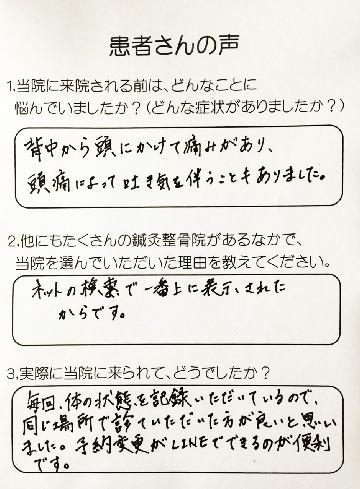 患者さんの声
1.当院に来院される前は、どんなことに
悩んでいましたか？(どんな症状がありましたか？)
背中から頭にかけて痛みがあり、
頭痛によって吐き気を伴うこともありました。
2.他にもたくさんの鍼灸整骨院があるなかで、
当院を選んでいただいた理由を教えてください。
ネットの検索で一番上に表示された
からです。
3.実際に当院に来られて、どうでしたか？
毎回、体の状態を記録いただいているので、
同じ場所で診ていただいた方が良いと思い
ました。予約変更がLINEでできるのが便利
です。